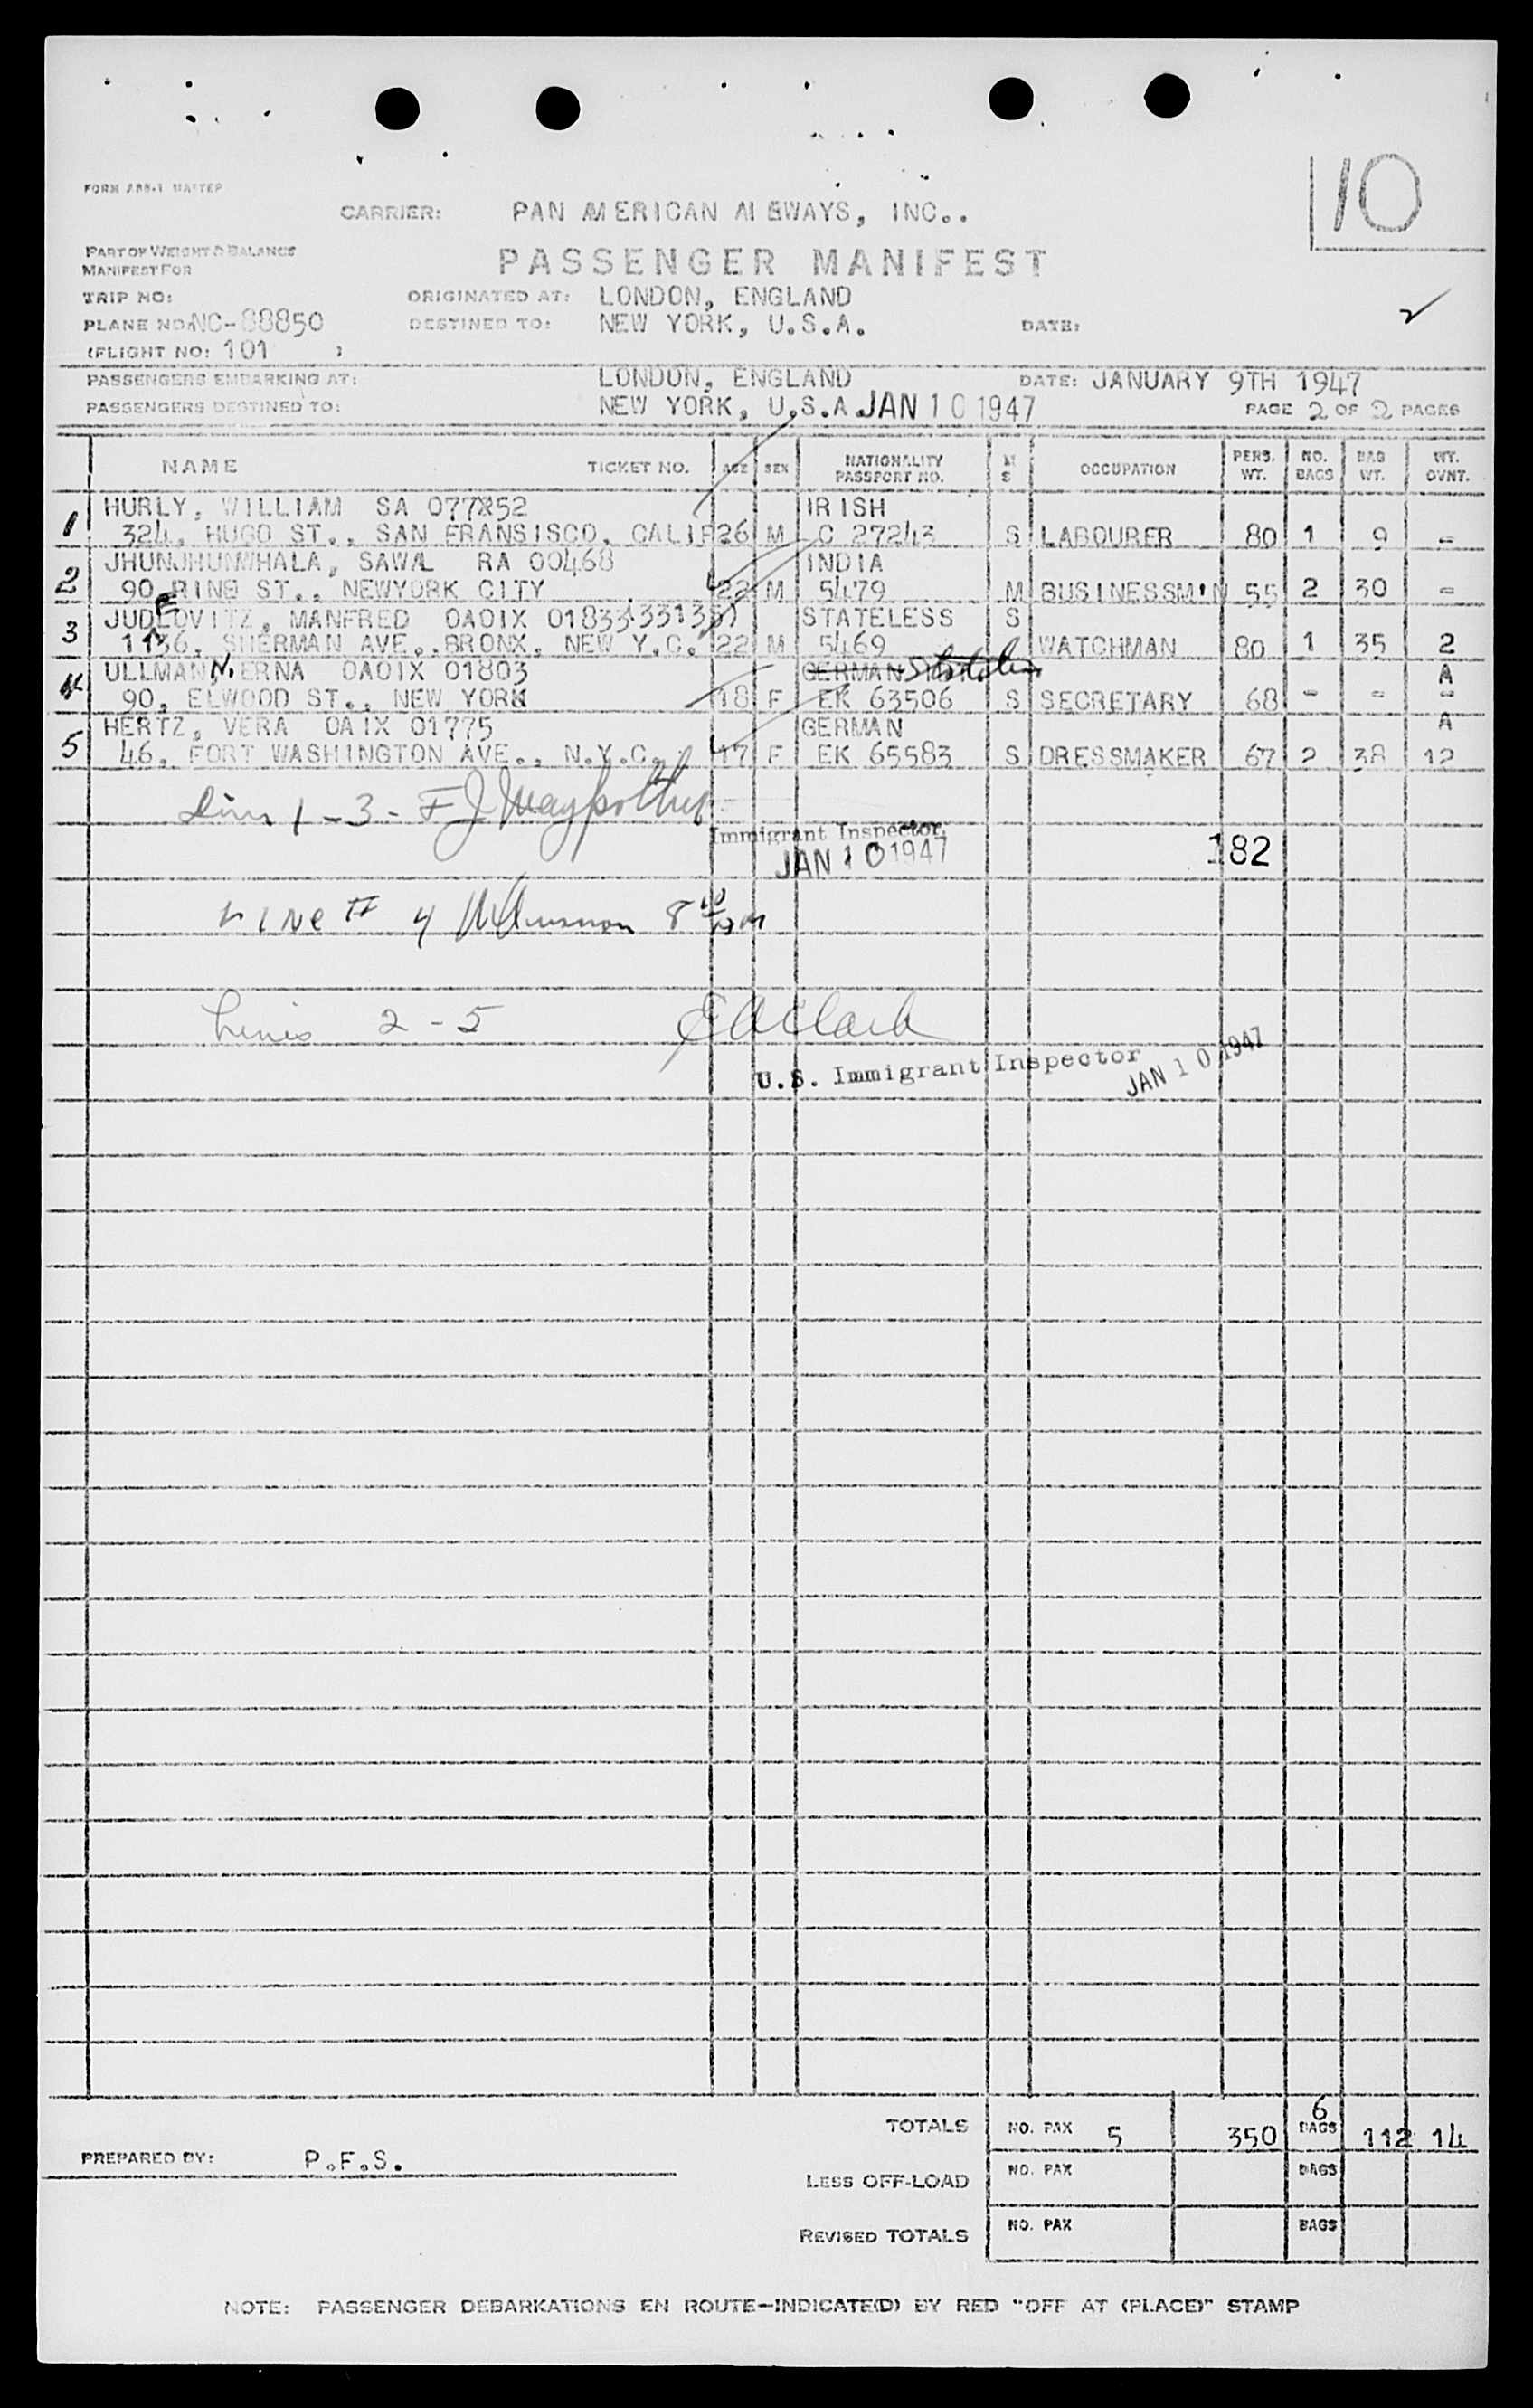 10
FORM
CARRIER: PAN AMERICAN AIRWAYS, INC..
PART OF WEIGHT & BALANCE
MANIFEST FOR
PASSENGER MANIFEST
TRIP NO: ORIGINATED AT: LONDON, ENGLAND
PLANE NO: NC-88850 DESTINED TO: NEW YORK, U.S.A. DATE:
(FLIGHT NO: 101 )
PASSENGERS EMBARKING AT: LONDON, ENGLAND DATE: JANUARY 9TH 1947
PASSENGERS DESTINED TO: NEW YORK, U.S.A. JAN 10 1947 PAGE 2 OF 2 PAGES
NAME TICKET NO. AGE SEX NATIONALITY PASSPORT NO. M S OCCUPATION PERS. WT. NO. BAGS BAG WT. WT. OVNT.
HURLY, WILLIAM SA 077252 IRISH
1 324, HUGO ST., SAN FRANSISCO, CALIF 26 M C 27243 S LABOURER 80 1 9 -
JHUNJHUNWHALA, SAWA RA 00468 INDIA
2 90 PINE ST., NEWYORK CITY 22 M 5479 M BUSINESSM'N 55 2 30 -
JUDELOVITZ, MANFRED OAOIX 01833 STATELESS S
3 SHERMAN AVE., BRONX, NEW Y.C. 22 M 5469 WATCHMAN 80 1 35 2
ULLMANN, ERNA OAOIX 01803 GERMAN A
4 90, ELWOOD ST., NEW YORK 18 F EK 63506 S SECRETARY 68 - - -
HERTZ, VERA OA IX 01775 GERMAN A
5 46, FORT WASHINGTON AVE., N.Y.C. 17 F EK 65583 S DRESSMAKER 67 2 38 12
1-3- F J
Immigrant Inspector
JAN 10 1947 182
Line # 4
Lines 2-5 E A Clark
U.S. Immigrant Inspector JAN 10 1947
TOTALS NO. PAX 5 350 6 BAGS 112 14
PREPARED BY: P.F.S.
LESS OFF-LOAD NO. PAX BAGS
REVISED TOTALS NO. PAX BAGS
NOTE: PASSENGER DEBARKATIONS EN ROUTE-INDICATE(D) BY RED "OFF AT (PLACE)" STAMP